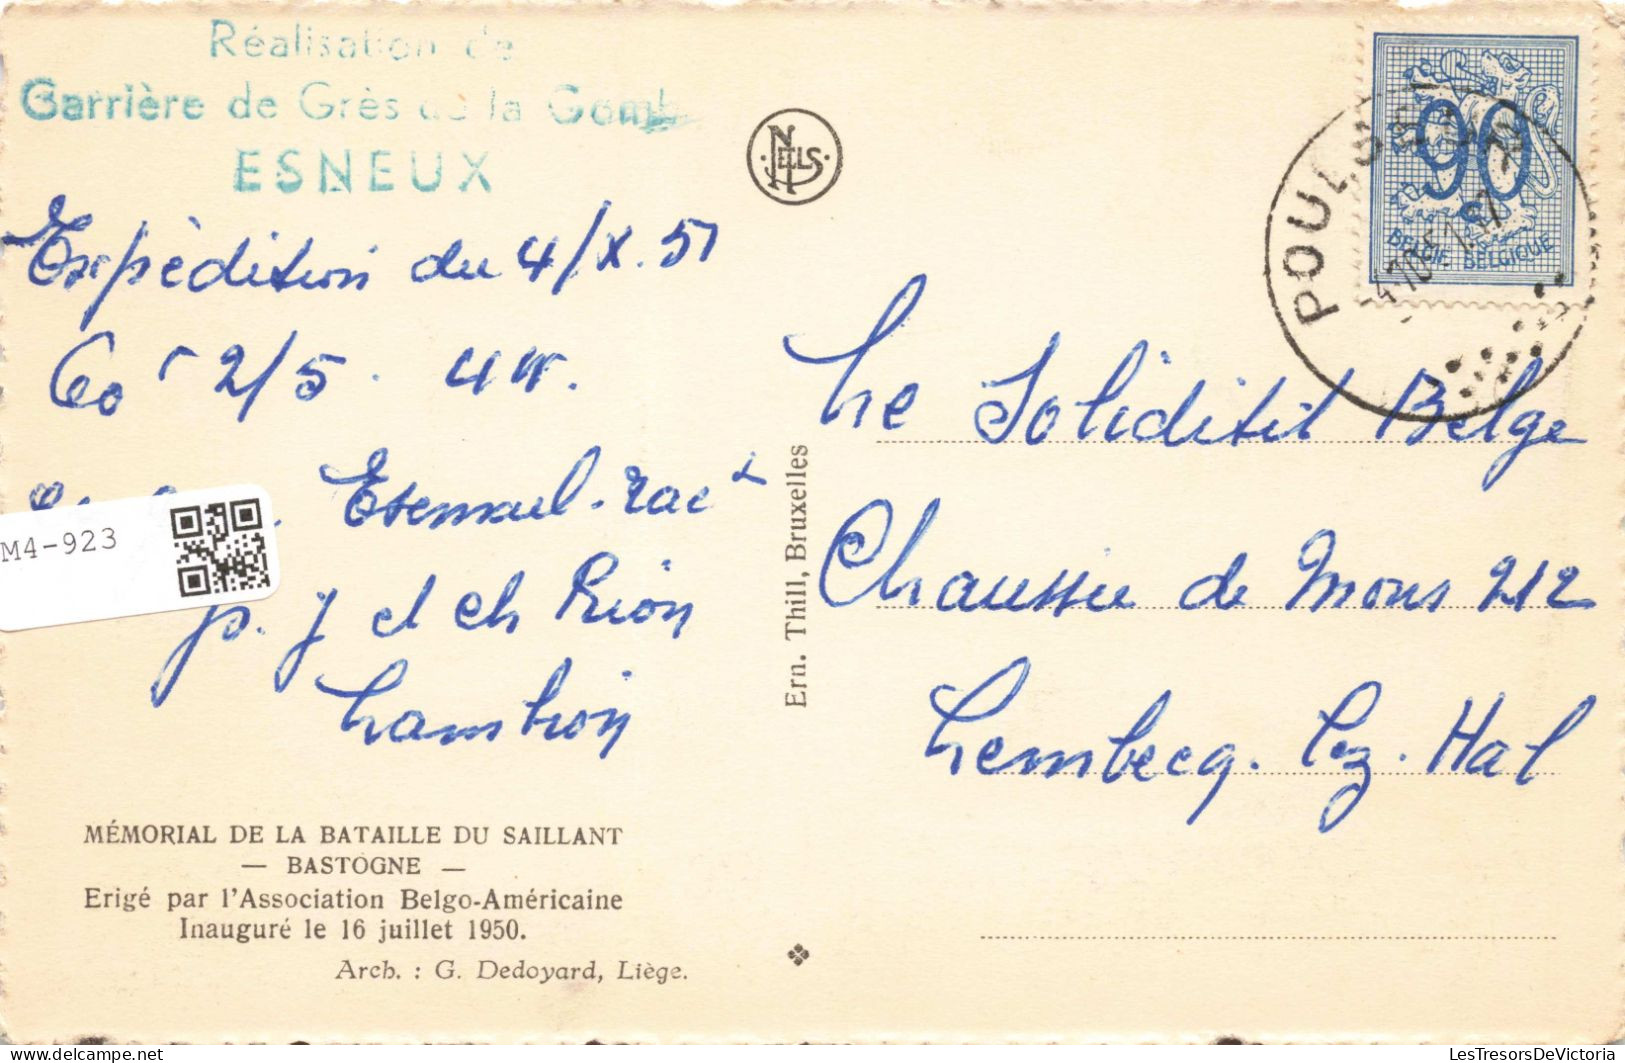 Réalisation de
Carrière de Grès de la Gomb
ESNEUX
Expédition du 4/X.51
Co r 2/5. 4 W.
M4-923
p. J et ch Rion
Lambion
MÉMORIAL DE LA BATAILLE DU SAILLANT
— BASTOGNE —
Erigé par l'Association Belgo-Américaine
Inauguré le 16 juillet 1950.
Arch. : G. Dedoyard, Liège.
NELS
Ern. Thill, Bruxelles
90
BELGIE BELGIQUE
POULSEUR
Le Soliditit Belge
Chaussée de Mons 212
Lembecq. lez. Hal
LesTresorsDeVictoria